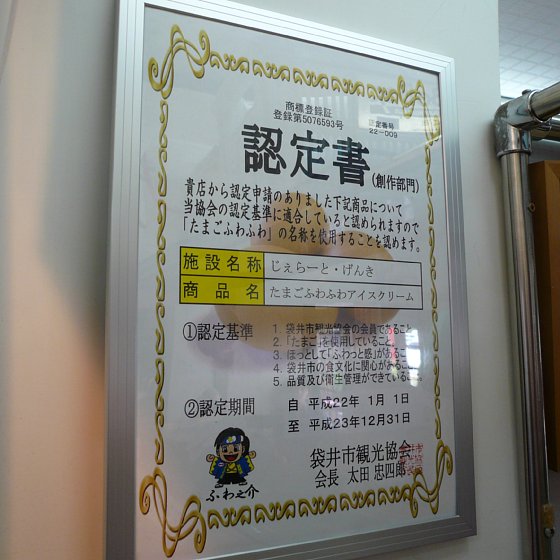 商標登録証
登録第5076593号
認定番号
22-009
認定書(創作部門)
貴店から認定申請のありました下記商品について
当協会の認定基準に適合していると認められますので
「たまごふわふわ」の名称を使用することを認めます。
施設名称 じぇらーと・げんき
商品名 たまごふわふわアイスクリーム
①認定基準 1. 袋井市観光協会の会員であること。
2. 「たまご」を使用していること。
3. ほっとして「ふわっと感」があること。
4. 袋井市の食文化に関心があること。
5. 品質及び衛生管理ができていること。
②認定期間 自 平成22年 1月 1日
至 平成23年12月31日
袋井市観光協会
会長 太田 忠四郎
ふわ之介